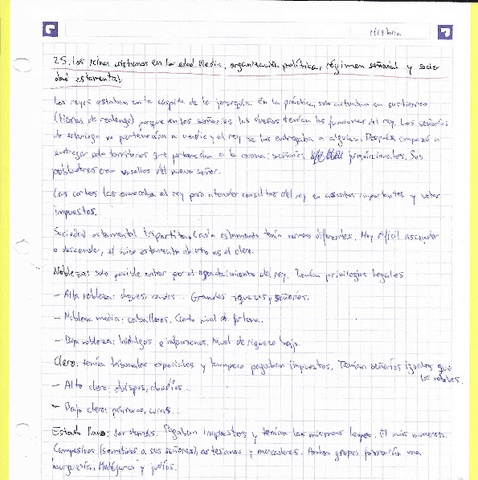 Historia
2.5. Los reinos cristianos en la edad Media: organización política, régimen señorial y socie
dad estamental
Los reyes estaban en la cúspide de la En la práctica, solo actuaban en su
(tierras de realengo) porque en los señoríos los tenían las funciones del rey. Los señoríos
no pertenecían a nadie y el rey se los entregaba a alguien. Después, empezó a
entregar solo territorios que pertenecían a la corona: señoríos jurisdiccionales. Sus
pobladores eran vasallos del nuevo señor.
Las cortes las convocaba el rey para atender consultas del rey en asuntos importantes y votar
impuestos.
Sociedad estamental tripartita. Cada estamento tenía normas diferentes. Muy difícil ascender
o descender, el único estamento abierto es el clero.
Nobleza: solo puede entrar por el del rey. Tenían privilegios legales
- Alta nobleza: duques, condes... Grandes riquezas y señoríos.
- Nobleza media: caballeros. Cierto nivel de fortuna.
- Baja nobleza: hidalgos e infanzones. Nivel de riqueza bajo.
Clero: tenía tribunales especiales y tampoco pagaban impuestos. Tenían señoríos igual que
los nobles.
- Alto clero: obispos, abadías...
- Bajo clero: párrocos, curas.
Estado llano: Pagaban impuestos y tenían las mismas leyes. El más numeroso.
Campesinos (sometidos a sus señores), artesanos y mercaderes. Ambos grupos formarán una
burguesía. Mudéjares y judíos.